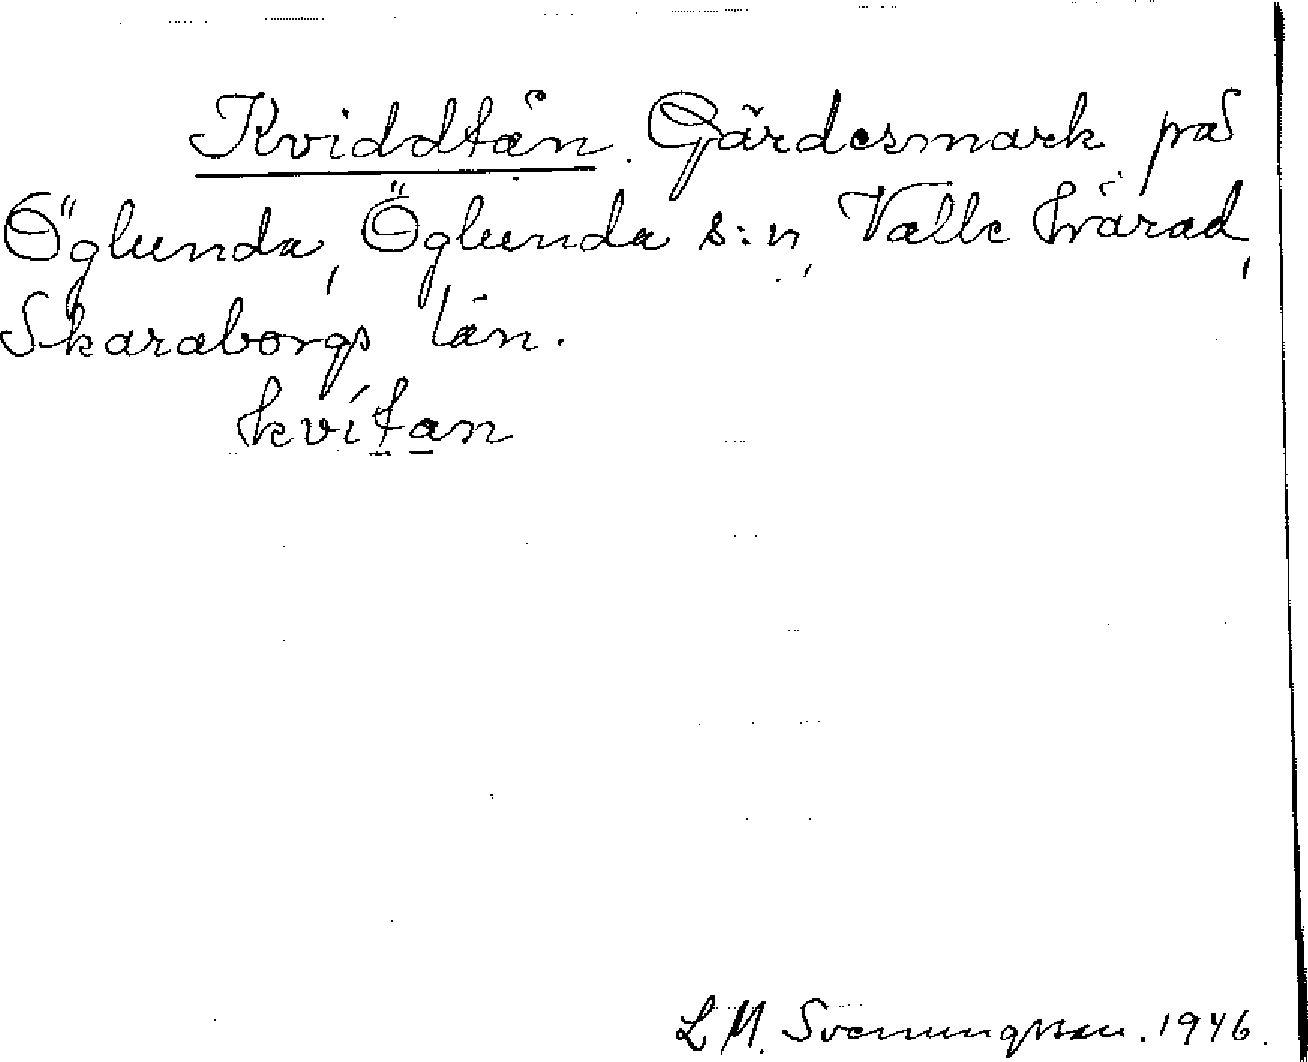 Kviddtån. Gärdesmark på
Öglunda, Öglunda s:n, Valle härad,
Skaraborgs län.
kvítan
L. M. Svenungsson. 1946.